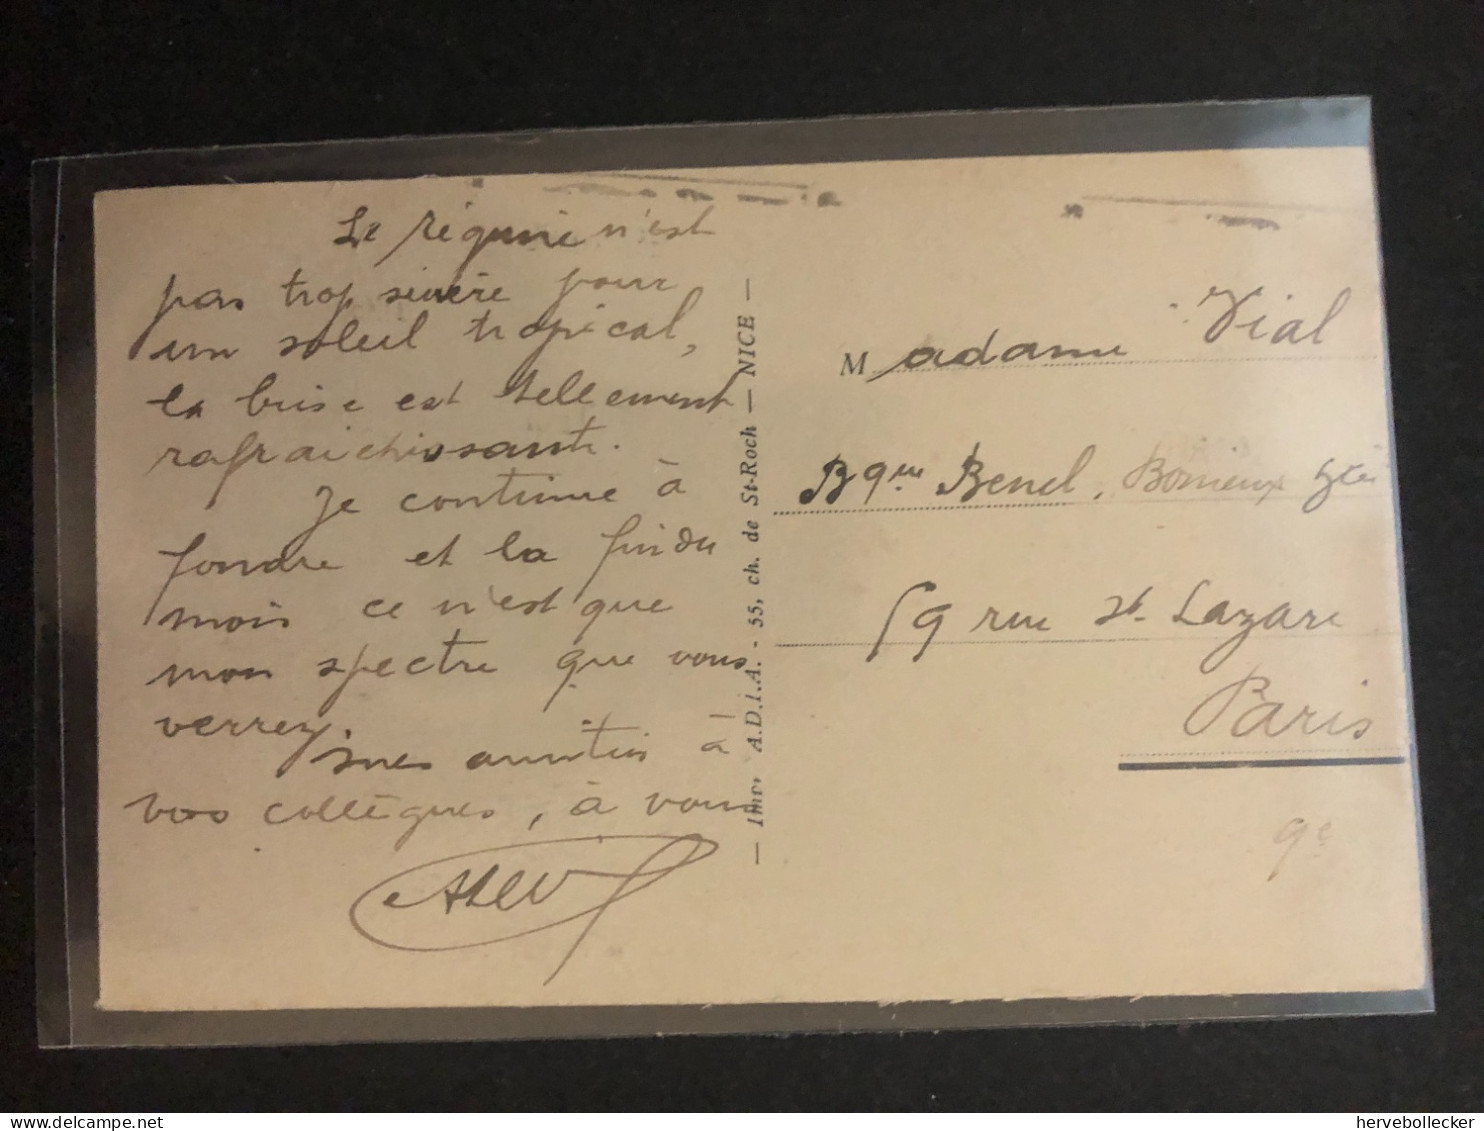 Le régime n'est
pas trop sévère pour
un soleil tropical,
la brise est tellement
rafraichissante.
Je continue à
fondre et la fin du
mois ce n'est que
mon spectre que vous
verrez.
mes amitiés à
vos collègues, à vous
— Imp. A.D.I.A. - 55, ch. de St-Roch — NICE —
Madame Vial
Bque Benel, Bonieux
59 rue St-Lazare
Paris
9e
hervebollecker